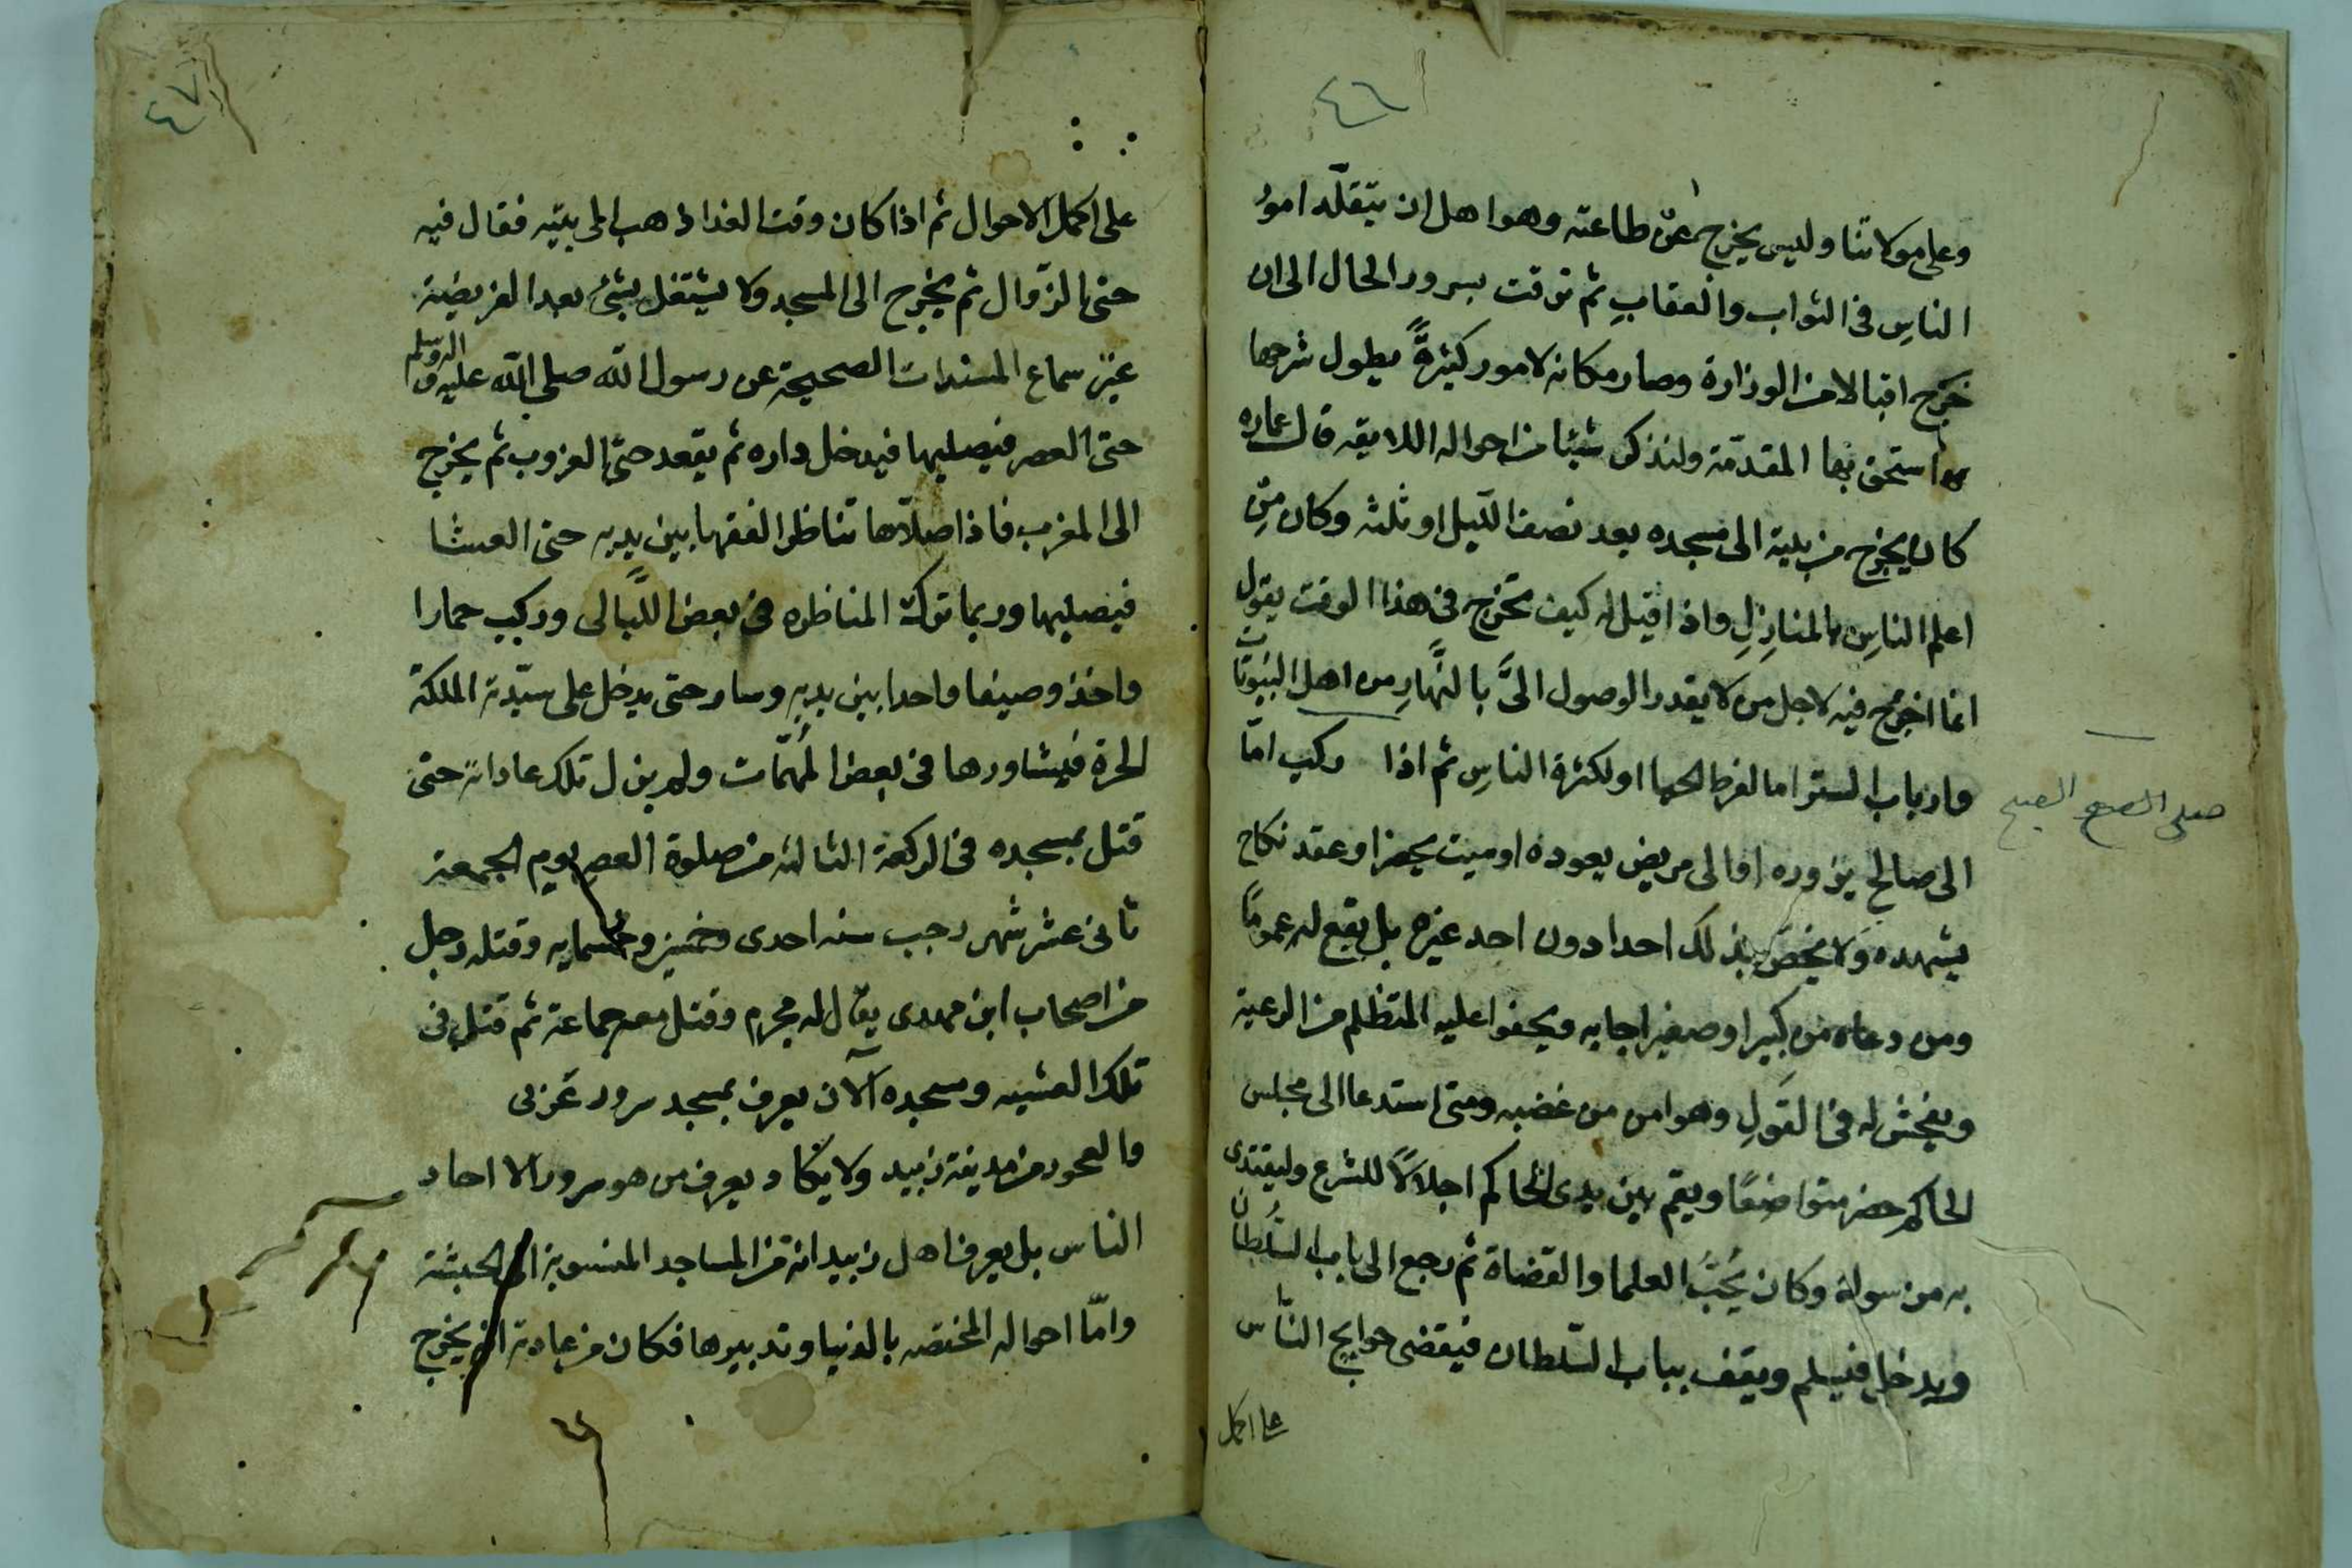 ٤٦
وعلى مولاتنا وليس يخرج عن طاعته وهو اهل ان يتقلد امور
الناس في الثواب والعقاب ثم ترقت بسرور الحال الى ان
خرج اقبالا من الوزارة وصار مكانه لامور كثيرة يطول شرحها
استحق بها المقدمة ولنذكر شيئا من احواله اللايقه قال عماره
كان يخرج من بيته الى مسجده بعد نصف الليل او ثلثه وكان من
اعلم الناس بالمنازل واذا قيل له كيف تخرج في هذا الوقت يقول
انما اخرج فيه لاجل من لا يقدر الوصول الىّ بالنهار من اهل البيوتات
وارباب الستر اما لفرط الحيا او لكثرة الناس ثم اذا ركب امّا
صلى الصبح الصبح
الى صالح يزوره او الى مريض يعوده او ميت يحضر او عقد نكاح
يشهده ولا يخص بذلك احدا دون احد غيره بل يقع له عموما
ومن دعاه من كبير او صغير اجابه ويجفوا عليه المتظلم من الرعية
ويفحش له في القول وهو امن من غضبه ومتى استدعا الى مجلس
الحاكم حضر متواضعًا ويقم بين يدى الحاكم اجلالاً للشرع وليقتدى
به من سواه وكان يُحبُّ العلما والقضاة ثم رجع الى باب السُلطان
ويدخل فيسلم ويقف بباب السّلطان فيقضى حوايج النّاس
على اكمل
٤٧
على اكمل الاحوال ثم اذا كان وقت الغدا ذهب الى بيته فقال فيه
حتى الزّوال ثم يخرج الى المسجد ولا يشتغل بشئ بعد الفريضة
غير سماع المسندات الصحيحة عن رسول الله صلى الله عليه واله وسلم
حتى العصر فيصليها فيدخل داره ثم يقعد حتى الغروب ثم يخرج
الى المغرب فاذا صلّاها تناظر الفقها بين يديه حتى العشا
فيصليها وربما ترك المناظره في بعض اللّيالى وركب حمارا
واخذ وصيفا واحدا بين يديه وسار حتى يدخل على سيّدته الملكة
الحرة فيشاورها في بعض المُهمّات ولم يزل تلك عاداته حتى
قتل بمسجده في الركعة الثالثه من صلوة العصر يوم الجمعة
ثانى عشر شهر رجب سنه احدى وخمسين وخمسمايه وقتله رجل
من اصحاب ابن مهدى يقال له مجرم وقتل معه جماعة ثم قتل في
تلك العشيه ومسجده الآن يعرف بمسجد سرور غربى
والعحور من مدينة زبيد ولا يكاد يعرف من هو سرور الا احاد
الناس بل يعرف اهل زبيد انه من المساجد المنسوبة الى الحبشة
وامّا احواله المختصه بالدنيا وتدبيرها فكان من عادته ان يخرج